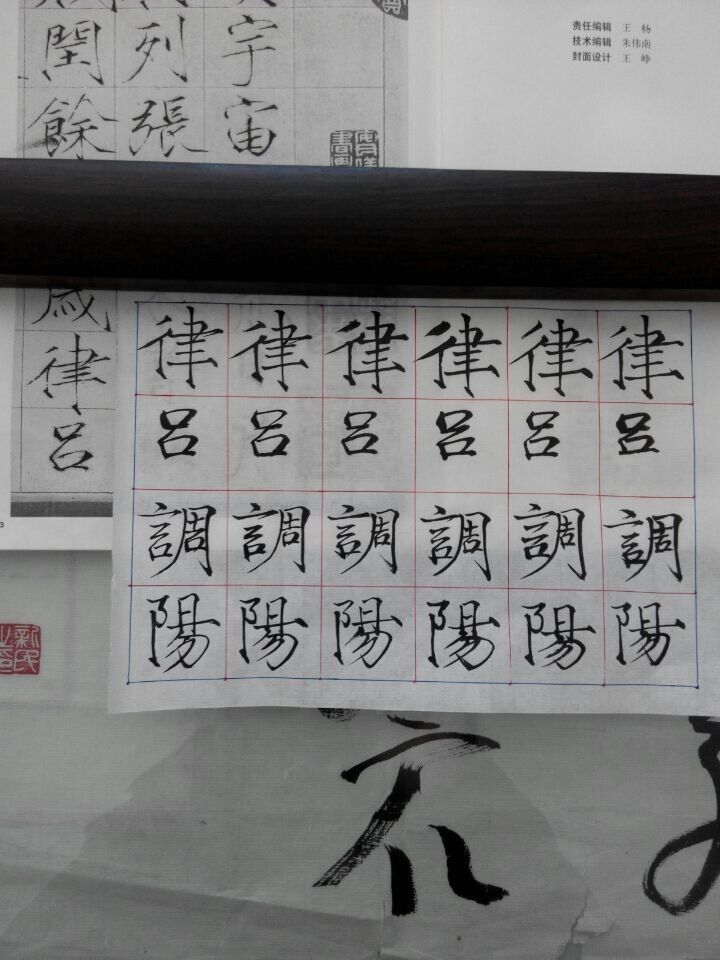 责任编辑 王 畅
技术编辑 朱伟南
封面设计 王 峥
宇宙
列張
閏餘
歲律呂
律呂調陽
律呂調陽
律呂調陽
律呂調陽
律呂調陽
律呂調陽